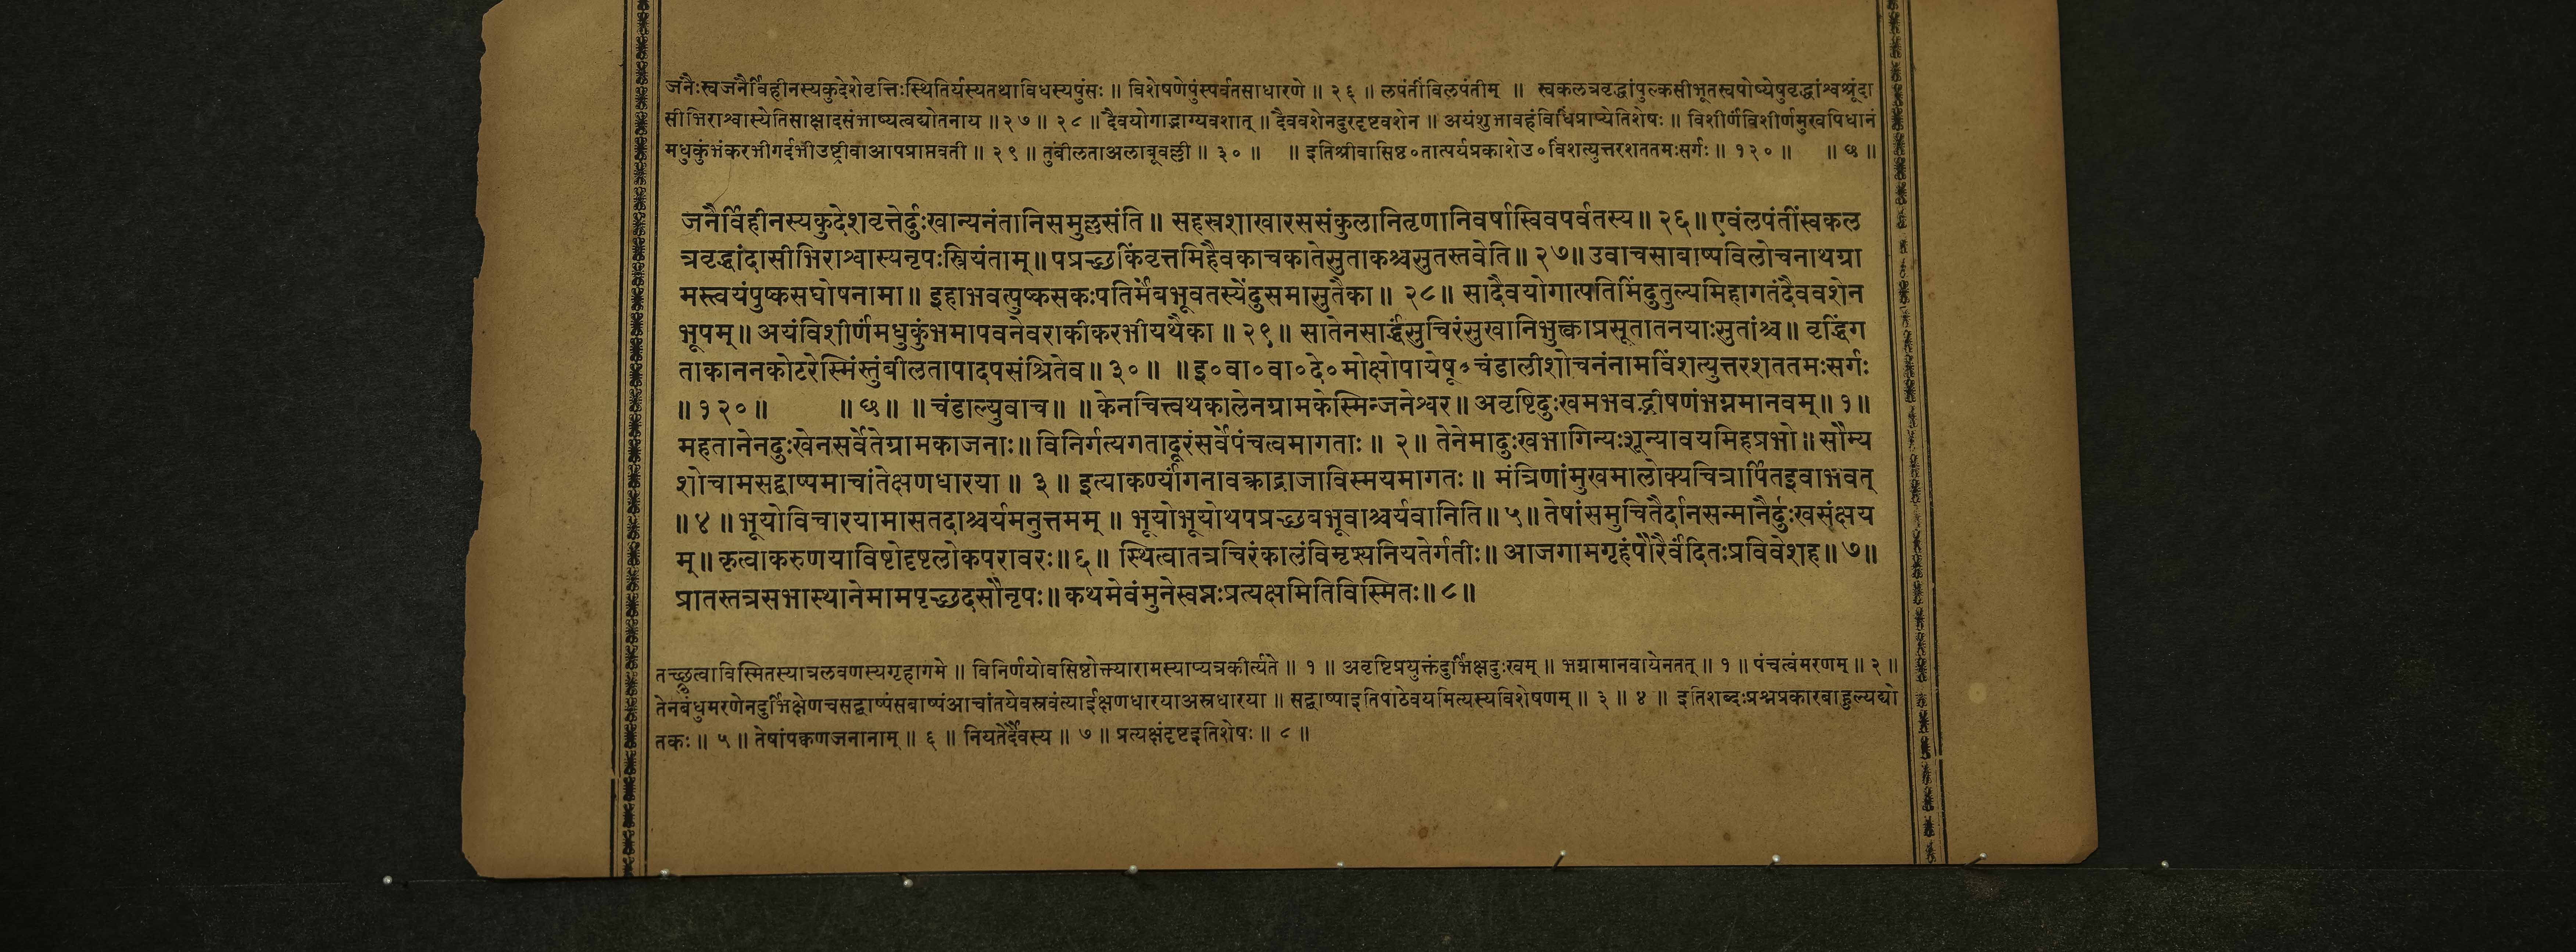 जनैःस्वजनैर्विहीनस्यकुदेशेवृत्तिःस्थितिर्यस्यतथाविधस्यपुंसः ॥ विशेषणेपुंस्पर्वतसाधारणे ॥ २६ ॥ लपंतींविलपंतीम् ॥ स्वकलत्रवृद्धांपुल्कसीभूतस्वपोष्येषुवृद्धांश्वश्रूंदा
सीभिराश्वास्येतिसाक्षादसंभाष्यत्वद्योतनाय ॥ २७ ॥ २८ ॥ दैवयोगाद्भाग्यवशात् ॥ दैववशेनदुरदृष्टवशेन ॥ अयंशुभावहंविधिंप्राप्येतिशेषः ॥ विशीर्णंविशीर्णमुखपिधानं
मधुकुंभंकरभीगर्दभीउष्ट्रीवाआपप्राप्तवती ॥ २९ ॥ तुंबीलताअलाबूवल्ली ॥ ३० ॥ ॥ इतिश्रीवासिष्ठ०तात्पर्यप्रकाशेउ०विंशत्युत्तरशततमःसर्गः ॥ १२० ॥ ॥ छ ॥
जनैर्विहीनस्यकुदेशवृत्तेर्दुःखान्यनंतानिसमुल्लसंति ॥ सहस्रशाखारससंकुलानितृणानिवर्षास्विवपर्वतस्य ॥ २६ ॥ एवंलपंतींस्वकल
त्रवृद्धांदासीभिराश्वास्यनृपःस्त्रियंताम् ॥ पप्रच्छकिंवृत्तमिहैवकाचकातेसुताकश्चसुतस्तवेति ॥ २७ ॥ उवाचसाबाष्पविलोचनाथग्रा
मस्त्वयंपुष्कसघोषनामा ॥ इहाभवत्पुष्कसकःपतिर्मेबभूवतस्येंदुसमासुतैका ॥ २८ ॥ सादैवयोगात्पतिमिंदुतुल्यमिहागतंदैववशेन
भूपम् ॥ अयंविशीर्णंमधुकुंभमापवनेवराकीकरभीयथैका ॥ २९ ॥ सातेनसार्द्धंसुचिरंसुखानिभुक्त्वाप्रसूतातनयाःसुतांश्च ॥ वृद्धिंग
ताकाननकोटरेस्मिंस्तुंबीलतापादपसंश्रितेव ॥ ३० ॥ ॥ इ०वा०वा०दे०मोक्षोपायेषू०चंडालीशोचनंनामविंशत्युत्तरशततमःसर्गः
॥ १२० ॥ ॥ छ ॥ ॥ चंडाल्युवाच ॥ ॥ केनचित्त्वथकालेनग्रामकेस्मिन्जनेश्वर ॥ अवृष्टिदुःखमभवद्भीषणंभग्नमानवम् ॥ १ ॥
महतानेनदुःखेनसर्वेतेग्रामकाजनाः ॥ विनिर्गत्यगतादूरंसर्वेपंचत्वमागताः ॥ २ ॥ तेनेमादुःखभागिन्यःशून्यावयमिहप्रभो ॥ सौम्य
शोचामसद्बाष्पमाचांतेक्षणधारया ॥ ३ ॥ इत्याकर्ण्यांगनावक्त्राद्राजाविस्मयमागतः ॥ मंत्रिणांमुखमालोक्यचित्रार्पितइवाभवत्
॥ ४ ॥ भूयोविचारयामासतदाश्चर्यमनुत्तमम् ॥ भूयोभूयोथपप्रच्छबभूवाश्चर्यवानिति ॥ ५ ॥ तेषांसमुचितैर्दानसन्मानैर्दुःखसंक्षय
म् ॥ कृत्वाकरुणयाविष्टोदृष्टलोकपरावरः ॥ ६ ॥ स्थित्वातत्रचिरंकालंविमृश्यनियतेर्गतीः ॥ आजगामगृहंपौरैर्वंदितःप्रविवेशह ॥ ७ ॥
प्रातस्तत्रसभास्थानेमामपृच्छदसौनृपः ॥ कथमेवंमुनेस्वप्नःप्रत्यक्षमितिविस्मितः ॥ ८ ॥
तच्छ्रुत्वाविस्मितस्यात्रलवणस्यगृहागमे ॥ विनिर्णयोवसिष्ठोक्त्यारामस्याप्यत्रकीर्त्यते ॥ १ ॥ अवृष्टिप्रयुक्तंदुर्भिक्षदुःखम् ॥ भग्नामानवायेनतत् ॥ १ ॥ पंचत्वंमरणम् ॥ २ ॥
तेनबंधुमरणेनदुर्भिक्षेणचसद्बाष्पंसबाष्पंआचांतयेवस्रवंत्याईक्षणधारयाअस्रधारया ॥ सद्बाष्पाइतिपाठेवयमित्यस्यविशेषणम् ॥ ३ ॥ ४ ॥ इतिशब्दःप्रश्नप्रकारबाहुल्यद्यो
तकः ॥ ५ ॥ तेषांपक्कणजनानाम् ॥ ६ ॥ नियतेर्दैवस्य ॥ ७ ॥ प्रत्यक्षंदृष्टइतिशेषः ॥ ८ ॥